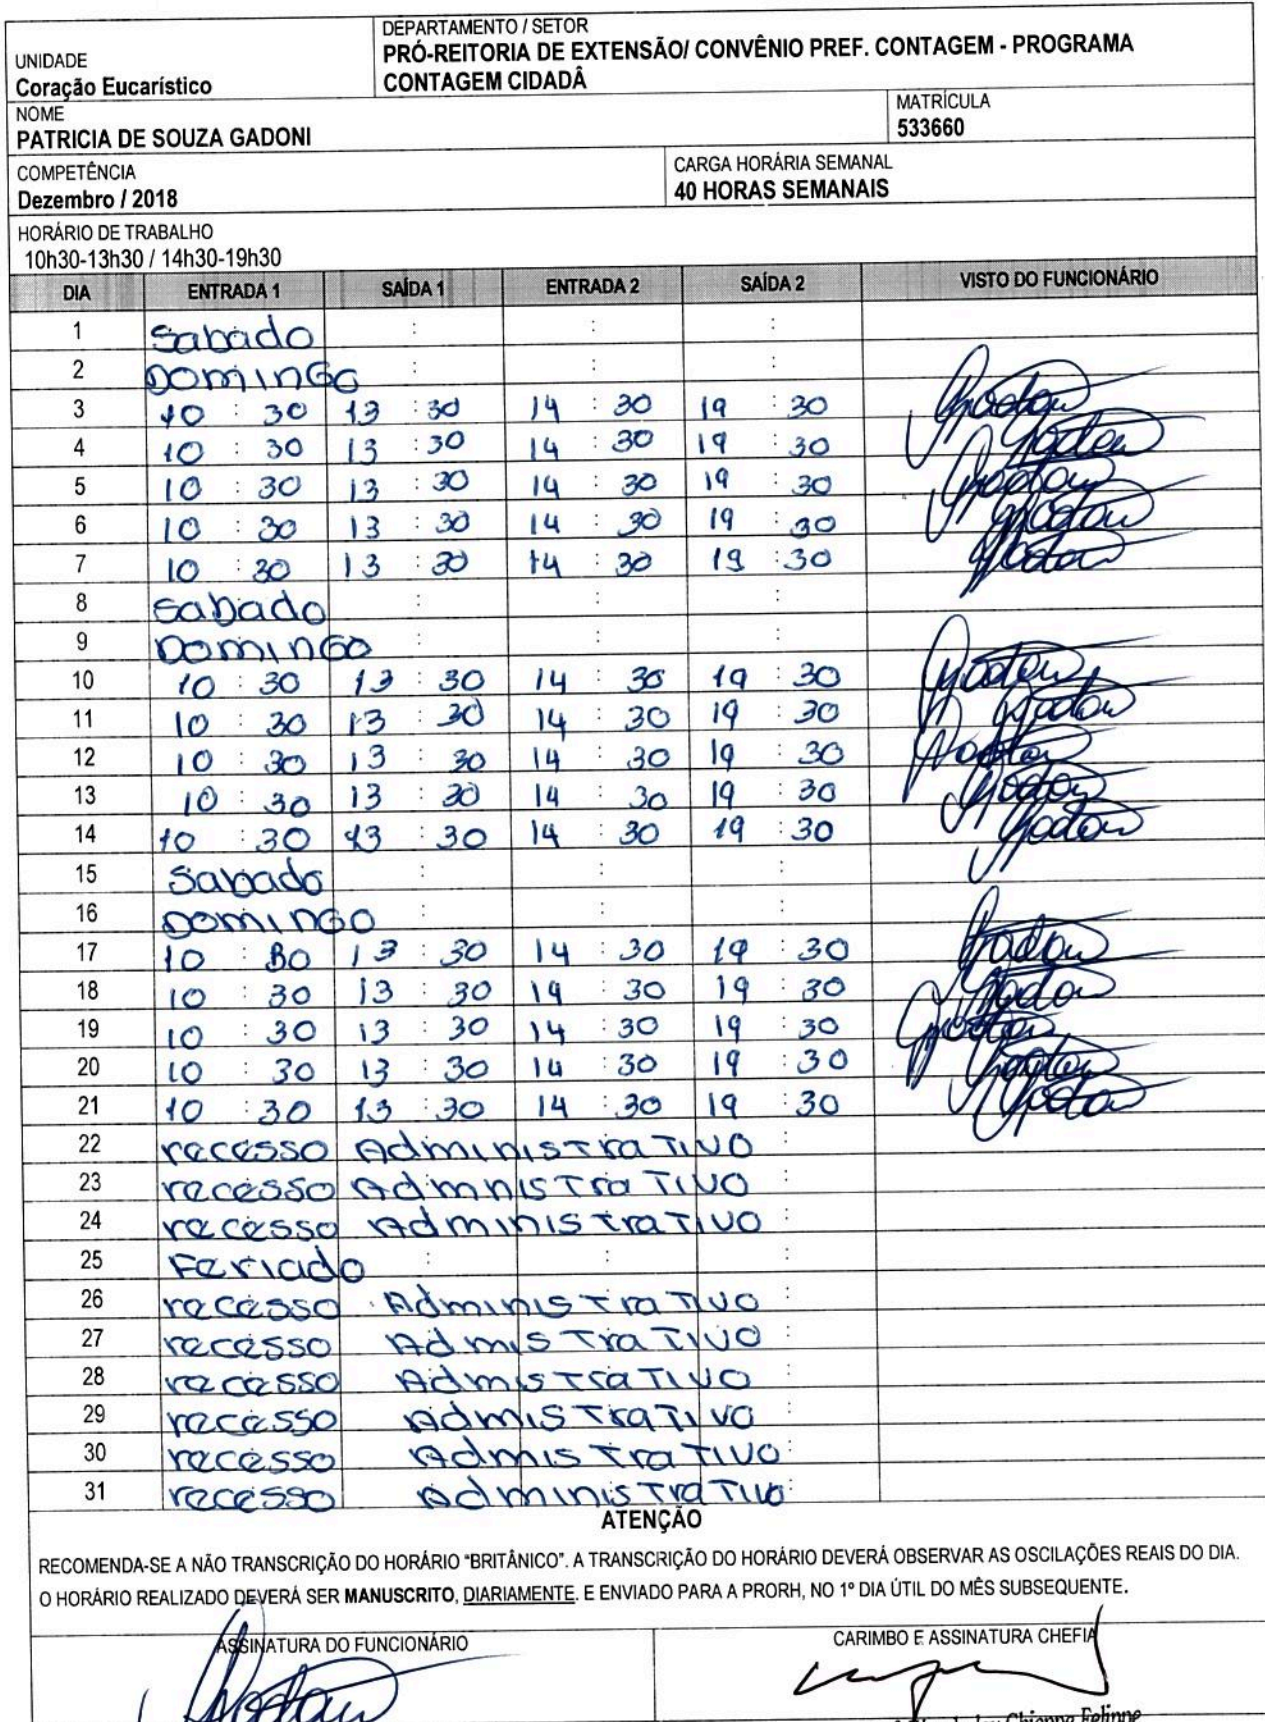 UNIDADE
Coração Eucarístico
DEPARTAMENTO / SETOR
PRÓ-REITORIA DE EXTENSÃO/ CONVÊNIO PREF. CONTAGEM - PROGRAMA
CONTAGEM CIDADÂ
NOME
PATRICIA DE SOUZA GADONI
MATRÍCULA
533660
COMPETÊNCIA
Dezembro / 2018
CARGA HORÁRIA SEMANAL
40 HORAS SEMANAIS
HORÁRIO DE TRABALHO
10h30-13h30 / 14h30-19h30
DIA ENTRADA 1 SAÍDA 1 ENTRADA 2 SAÍDA 2 VISTO DO FUNCIONÁRIO
1 Sabado : : :
2 DOMINGO : : :
3 10 : 30 13 : 30 14 : 30 19 : 30
4 10 : 30 13 : 30 14 : 30 19 : 30
5 10 : 30 13 : 30 14 : 30 19 : 30
6 10 : 30 13 : 30 14 : 30 19 : 30
7 10 : 30 13 : 30 14 : 30 19 : 30
8 Sabado : : :
9 DOMINGO : : :
10 10 : 30 13 : 30 14 : 30 19 : 30
11 10 : 30 13 : 30 14 : 30 19 : 30
12 10 : 30 13 : 30 14 : 30 19 : 30
13 10 : 30 13 : 30 14 : 30 19 : 30
14 10 : 30 13 : 30 14 : 30 19 : 30
15 Sabado : : :
16 DOMINGO : : :
17 10 : 30 13 : 30 14 : 30 19 : 30
18 10 : 30 13 : 30 19 : 30 19 : 30
19 10 : 30 13 : 30 14 : 30 19 : 30
20 10 : 30 13 : 30 14 : 30 19 : 30
21 10 : 30 13 : 30 14 : 30 19 : 30
22 recesso Administrativo :
23 recesso Admnistrativo :
24 recesso Administrativo :
25 Feriado : : :
26 recesso Administrativo :
27 recesso Admistrativo :
28 recesso Admistrativo :
29 recesso Admistrativo :
30 recesso Admistrativo :
31 recesso Administrativo :
ATENÇÃO
RECOMENDA-SE A NÃO TRANSCRIÇÃO DO HORÁRIO "BRITÂNICO". A TRANSCRIÇÃO DO HORÁRIO DEVERÁ OBSERVAR AS OSCILAÇÕES REAIS DO DIA.
O HORÁRIO REALIZADO DEVERÁ SER MANUSCRITO, DIARIAMENTE. E ENVIADO PARA A PRORH, NO 1º DIA ÚTIL DO MÊS SUBSEQUENTE.
ASSINATURA DO FUNCIONÁRIO
CARIMBO E ASSINATURA CHEFIA
Felippe